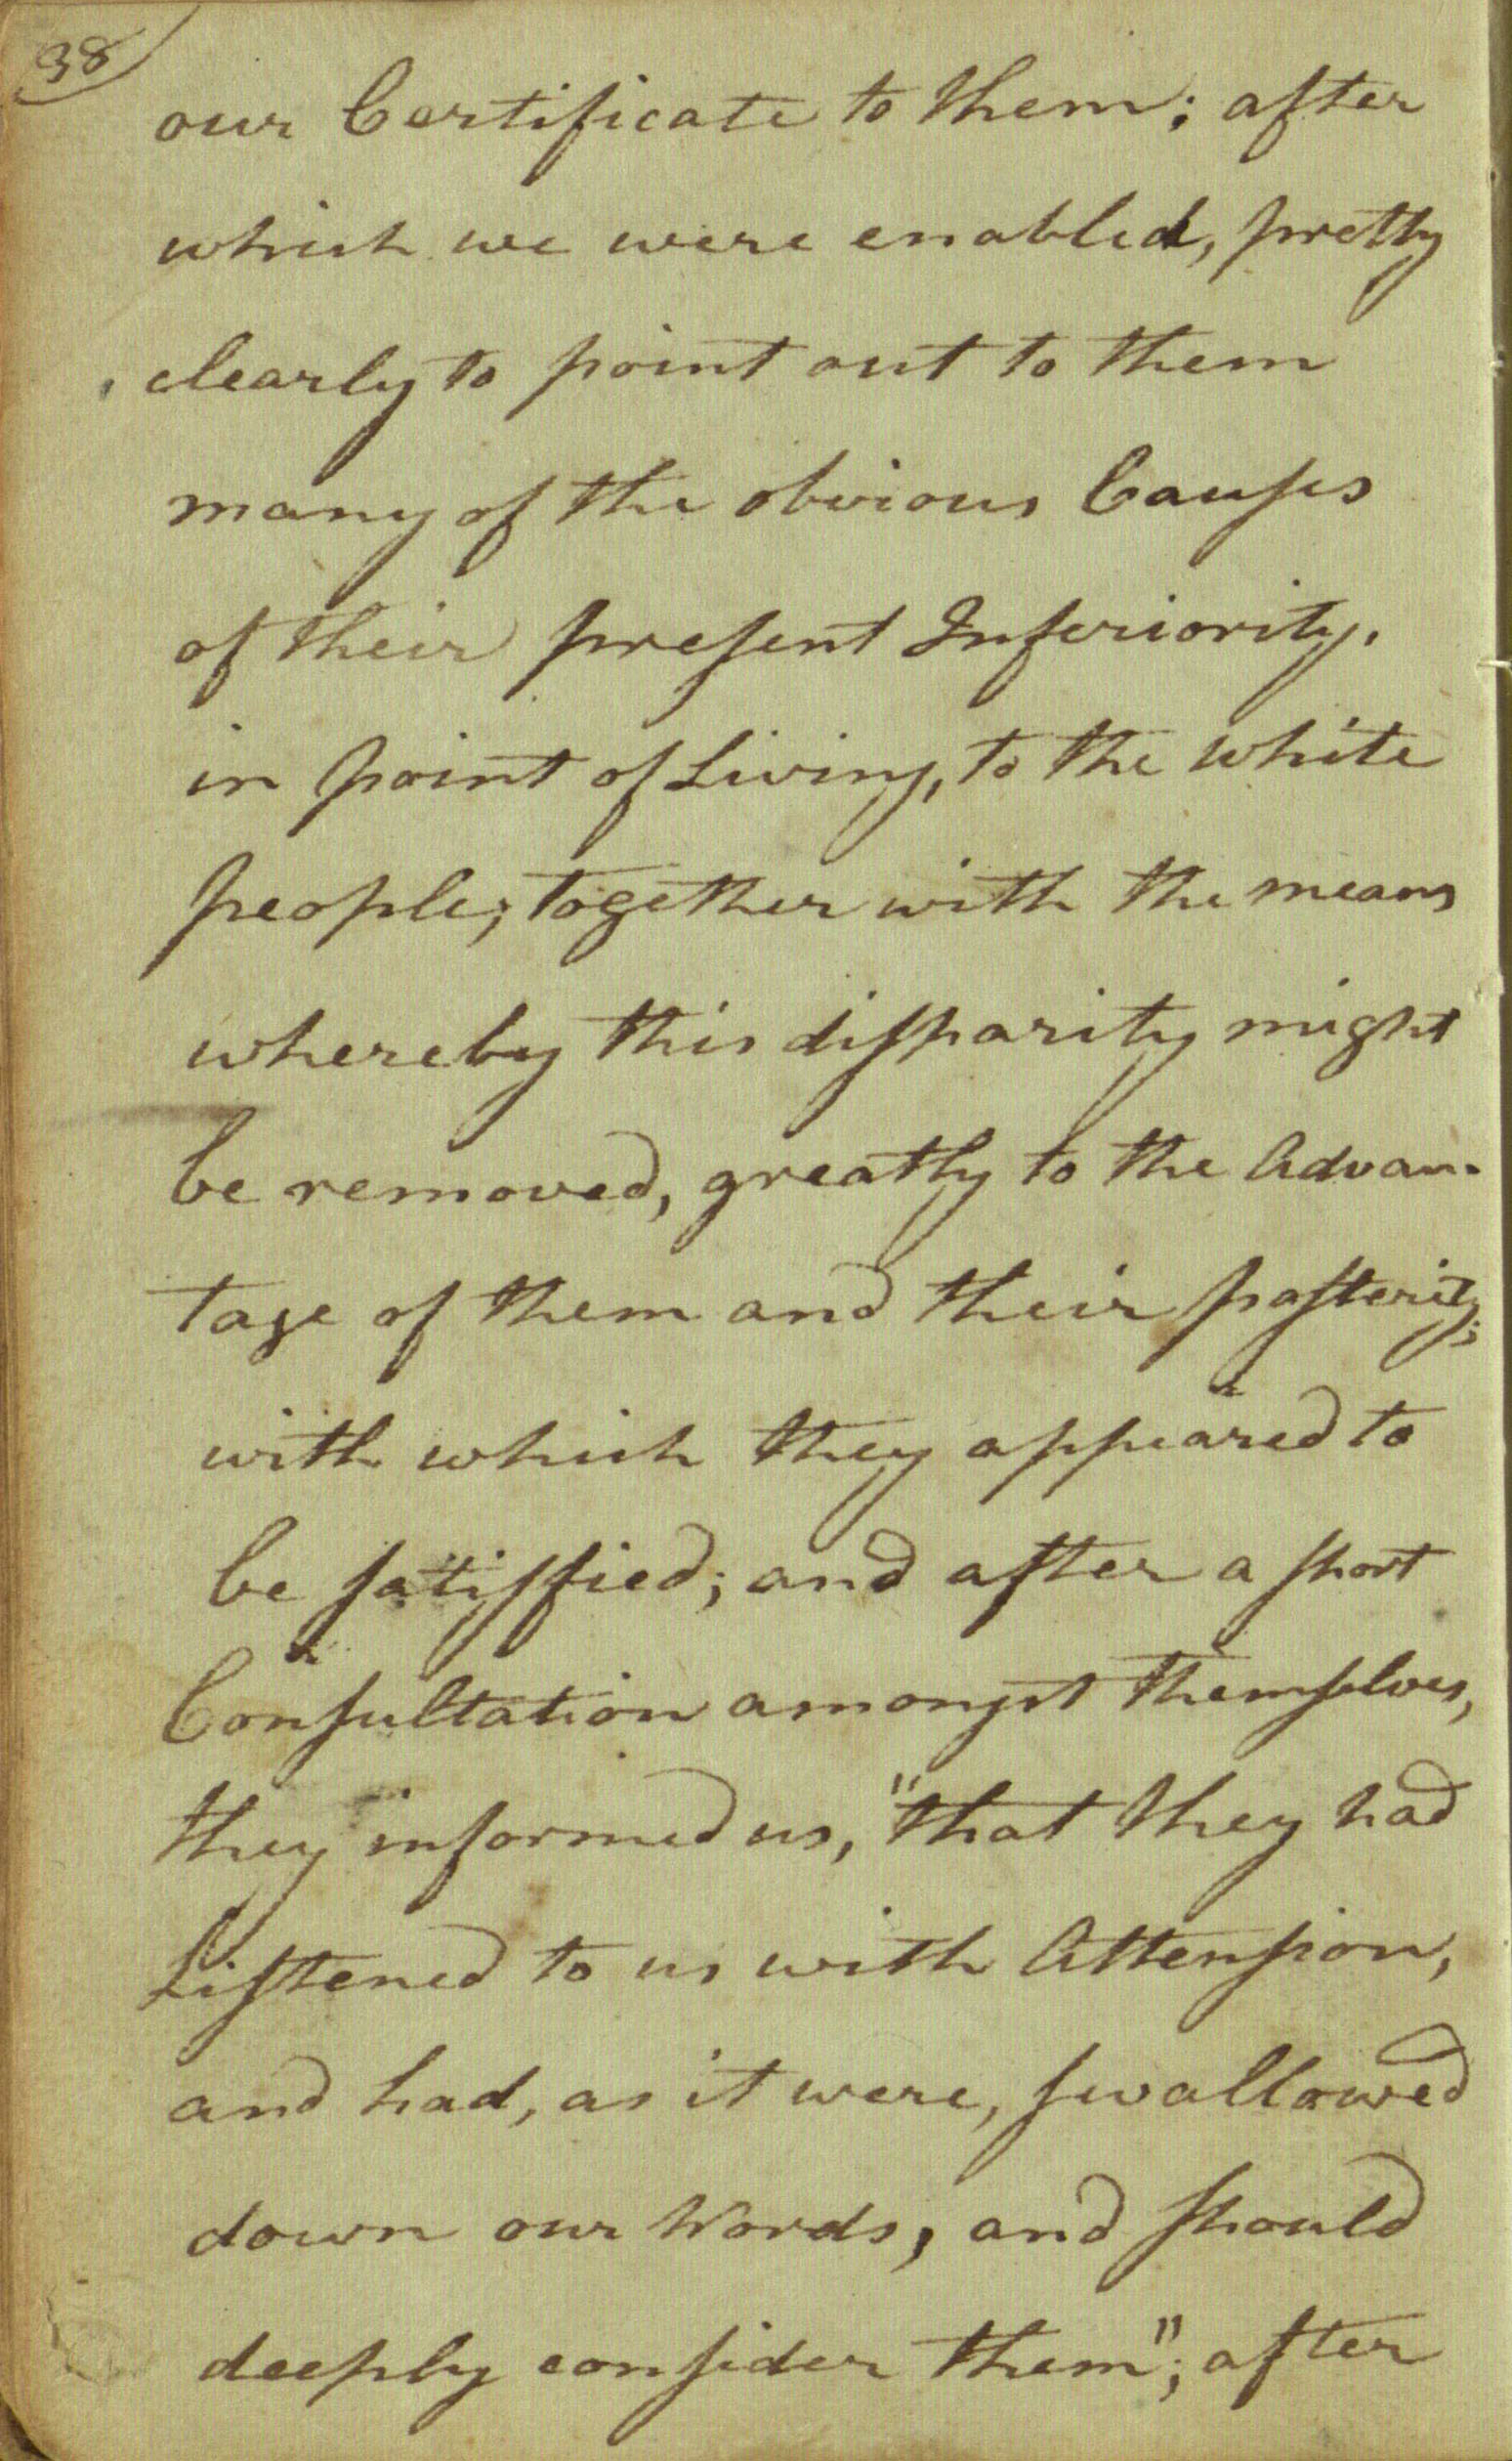 38
our Certificate to them; after
which we were enabled, pretty
clearly to point out to them
many of the obvious Cauſes
of their preſent Inferiority,
in point of Living, to the white
people; together with the means
whereby this diſparity might
be removed, greatly to the Advan-
tage of them and their poſterity;
with which they appeared to
be ſatiſfied; and after a ſhort
Conſultation amongst themſelves,
they informed us, "that they had
Liſtened to us with Attenſion,
and had, as it were, ſwallowed
down our Words, and ſhould
deeply conſider them"; after